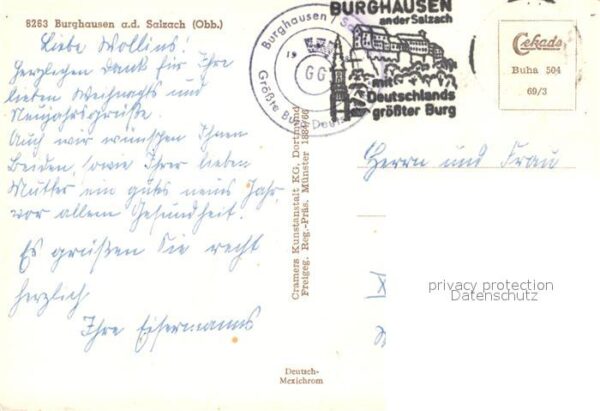 8263 Burghausen a.d. Salzach (Obb.)
Liebe Wollins!
Herzlichen Dank für Ihre
lieben Weihnachts und
Neujahrsgrüße.
Auch wir wünschen Ihnen
Beiden, sowie Ihrer lieben
Mutter ein gutes neues Jahr,
vor allem Gesundheit.
Es grüßen Sie recht
herzlich
Ihre Eisermanns
Burghausen / S
19
GG
Größte Bu Deu
BURGHAUSEN
an der Salzach
mit
Deutschlands
größter Burg
Cekade
Buha 504
69/3
Cramers Kunstanstalt KG, Dortmund
Freigeg. Reg.-Präs. Münster 1884/66
Herrn und Frau
privacy protection
Datenschutz
Deutsch-
Mexichrom